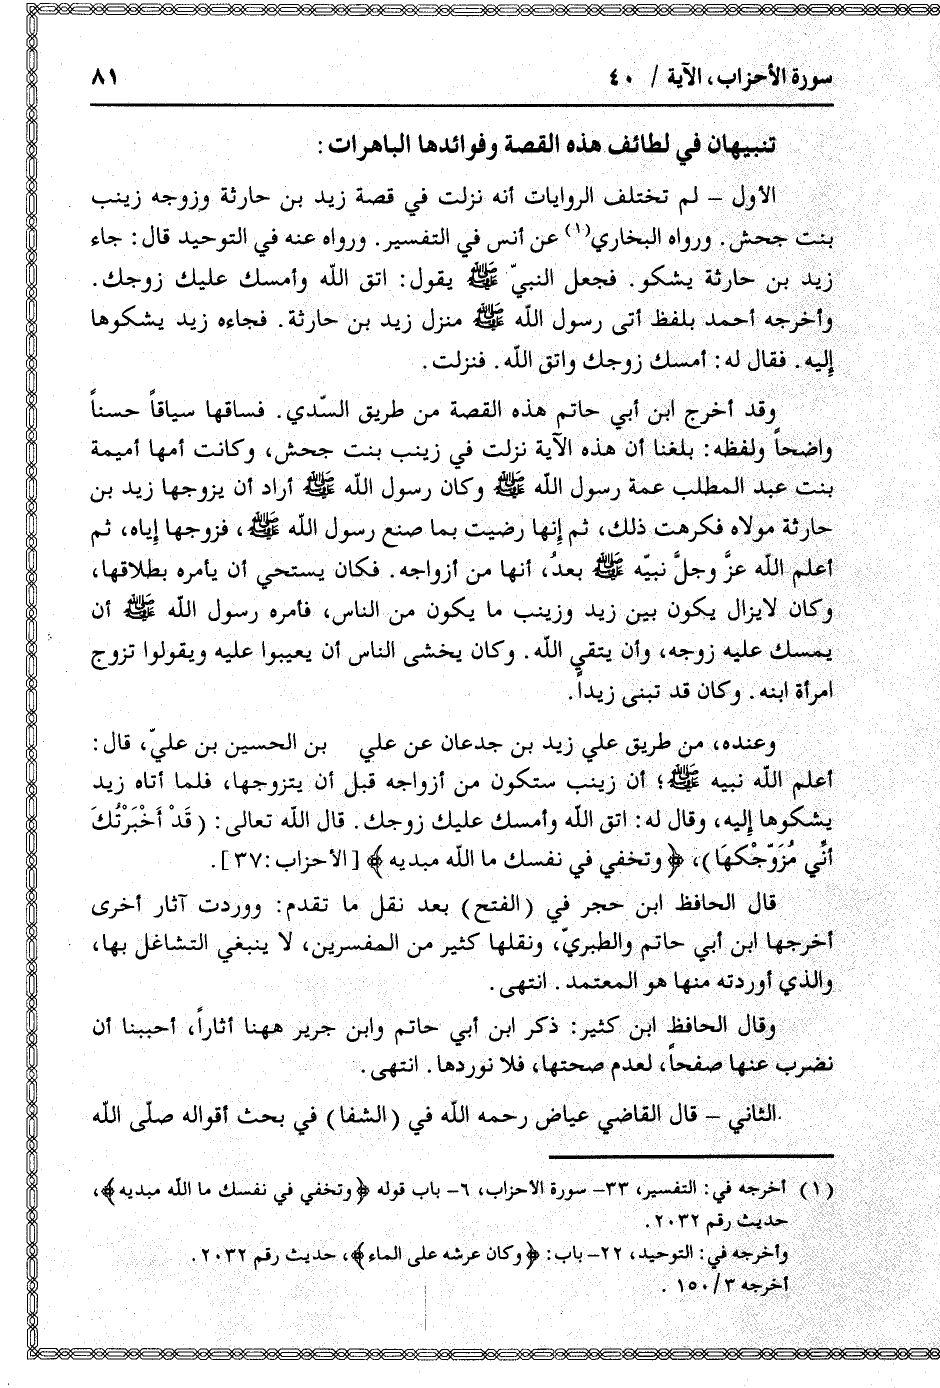 سورة الأحزاب، الآية / ٤٠
٨١
تنبيهان في لطائف هذه القصة وفوائدها الباهرات :
الأول – لم تختلف الروايات أنه نزلت في قصة زيد بن حارثة وزوجه زينب
بنت جحش. ورواه البخاري(١) عن أنس في التفسير. ورواه عنه في التوحيد قال: جاء
زيد بن حارثة يشكو. فجعل النبيّ ﷺ يقول: اتق اللّه وأمسك عليك زوجك.
وأخرجه أحمد بلفظ أتى رسول اللّه ﷺ منزل زيد بن حارثة. فجاءه زيد يشكوها
إليه. فقال له: أمسك زوجك واتق اللّه. فنزلت.
وقد أخرج ابن أبي حاتم هذه القصة من طريق السّدي. فساقها سياقاً حسناً
واضحاً ولفظه: بلغنا أن هذه الآية نزلت في زينب بنت جحش، وكانت أمها أميمة
بنت عبد المطلب عمة رسول اللّه ﷺ وكان رسول اللّه ﷺ أراد أن يزوجها زيد بن
حارثة مولاه فكرهت ذلك، ثم إنها رضيت بما صنع رسول اللّه ﷺ، فزوجها إياه، ثم
أعلم اللّه عزَّ وجلَّ نبيّه ﷺ بعدُ، أنها من أزواجه. فكان يستحي أن يأمره بطلاقها،
وكان لايزال يكون بين زيد وزينب ما يكون من الناس، فأمره رسول اللّه ﷺ أن
يمسك عليه زوجه، وأن يتقي اللّه. وكان يخشى الناس أن يعيبوا عليه ويقولوا تزوج
امرأة ابنه. وكان قد تبنى زيداً.
وعنده، من طريق علي زيد بن جدعان عن علي بن الحسين بن عليّ، قال:
أعلم اللّه نبيه ﷺ؛ أن زينب ستكون من أزواجه قبل أن يتزوجها، فلما أتاه زيد
يشكوها إليه، وقال له: اتق اللّه وأمسك عليك زوجك. قال اللّه تعالى: (قَدْ أَخْبَرْتُكَ
أنِّي مُزَوّجْكهَا)، ﴿وتخفي في نفسك ما اللّه مبديه﴾ [الأحزاب:٣٧].
قال الحافظ ابن حجر في (الفتح) بعد نقل ما تقدم: ووردت آثار أخرى
أخرجها ابن أبي حاتم والطبريّ، ونقلها كثير من المفسرين، لا ينبغي التشاغل بها،
والذي أوردته منها هو المعتمد. انتهى.
وقال الحافظ ابن كثير: ذكر ابن أبي حاتم وابن جرير ههنا أثاراً، أحببنا أن
نضرب عنها صفحاً، لعدم صحتها، فلا نوردها. انتهى.
الثاني – قال القاضي عياض رحمه اللّه في (الشفا) في بحث أقواله صلّى اللّه
(١) أخرجه في: التفسير، ٣٣– سورة الاحزاب، ٦– باب قوله ﴿وتخفي في نفسك ما اللّه مبديه﴾،
حديث رقم ٢٠٣٢.
وأخرجه في: التوحيد، ٢٢– باب: ﴿وكان عرشه على الماء﴾، حديث رقم ٢٠٣٢.
أخرجه ١٥٠/٣ .